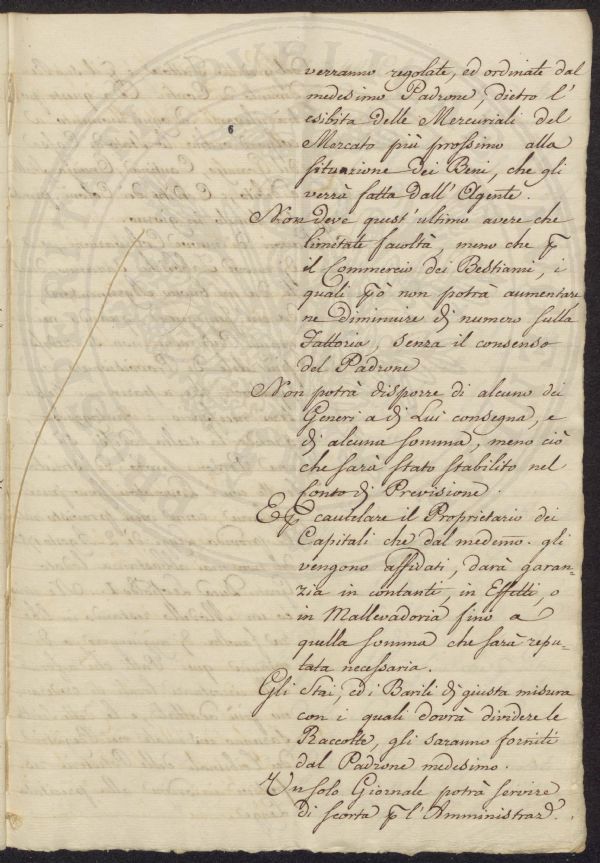 verranno regolate, ed ordinate dal
medesimo Padrone, dietro l'
esibita delle Mercuriali del
6
Mercato più prossimo alla
situazione dei Beni, che gli
verrà fatta dall' Agente.
Non deve quest' ultimo avere che
limitate facoltà, meno che ꝑ
il Commercio dei Bestiami, i
quali ꝑò non potrà aumentare
ne diminuire di numero sulla
Fattoria, senza il consenso
del Padrone
Non potrà disporre di alcuno dei
Generi a di Lui consegna, e
di alcuna somma, meno ciò
che sarà stato stabilito nel
Conto di Previsione.
E ꝑ cautelare il Proprietario dei
Capitali che dal medemo. gli
vengono affidati, darà garan-
zia in contanti, in Effetti, o
in Mallevadoria fino a
quella somma che sarà repu-
tata necessaria.
Gli Stai, ed i Barili di giusta misura
con i quali dovrà dividere le
Raccolte, gli saranno forniti
dal Padrone medesimo.
Un solo Giornale potrà servire
di scorta ꝑ l'Amministraz.